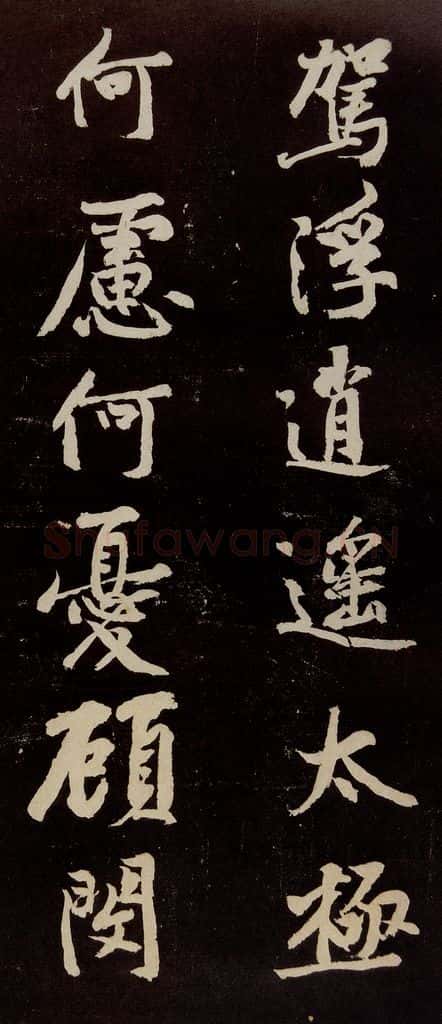 駕浮逍遥太極
何慮何憂顧閔
Shufawang.CN